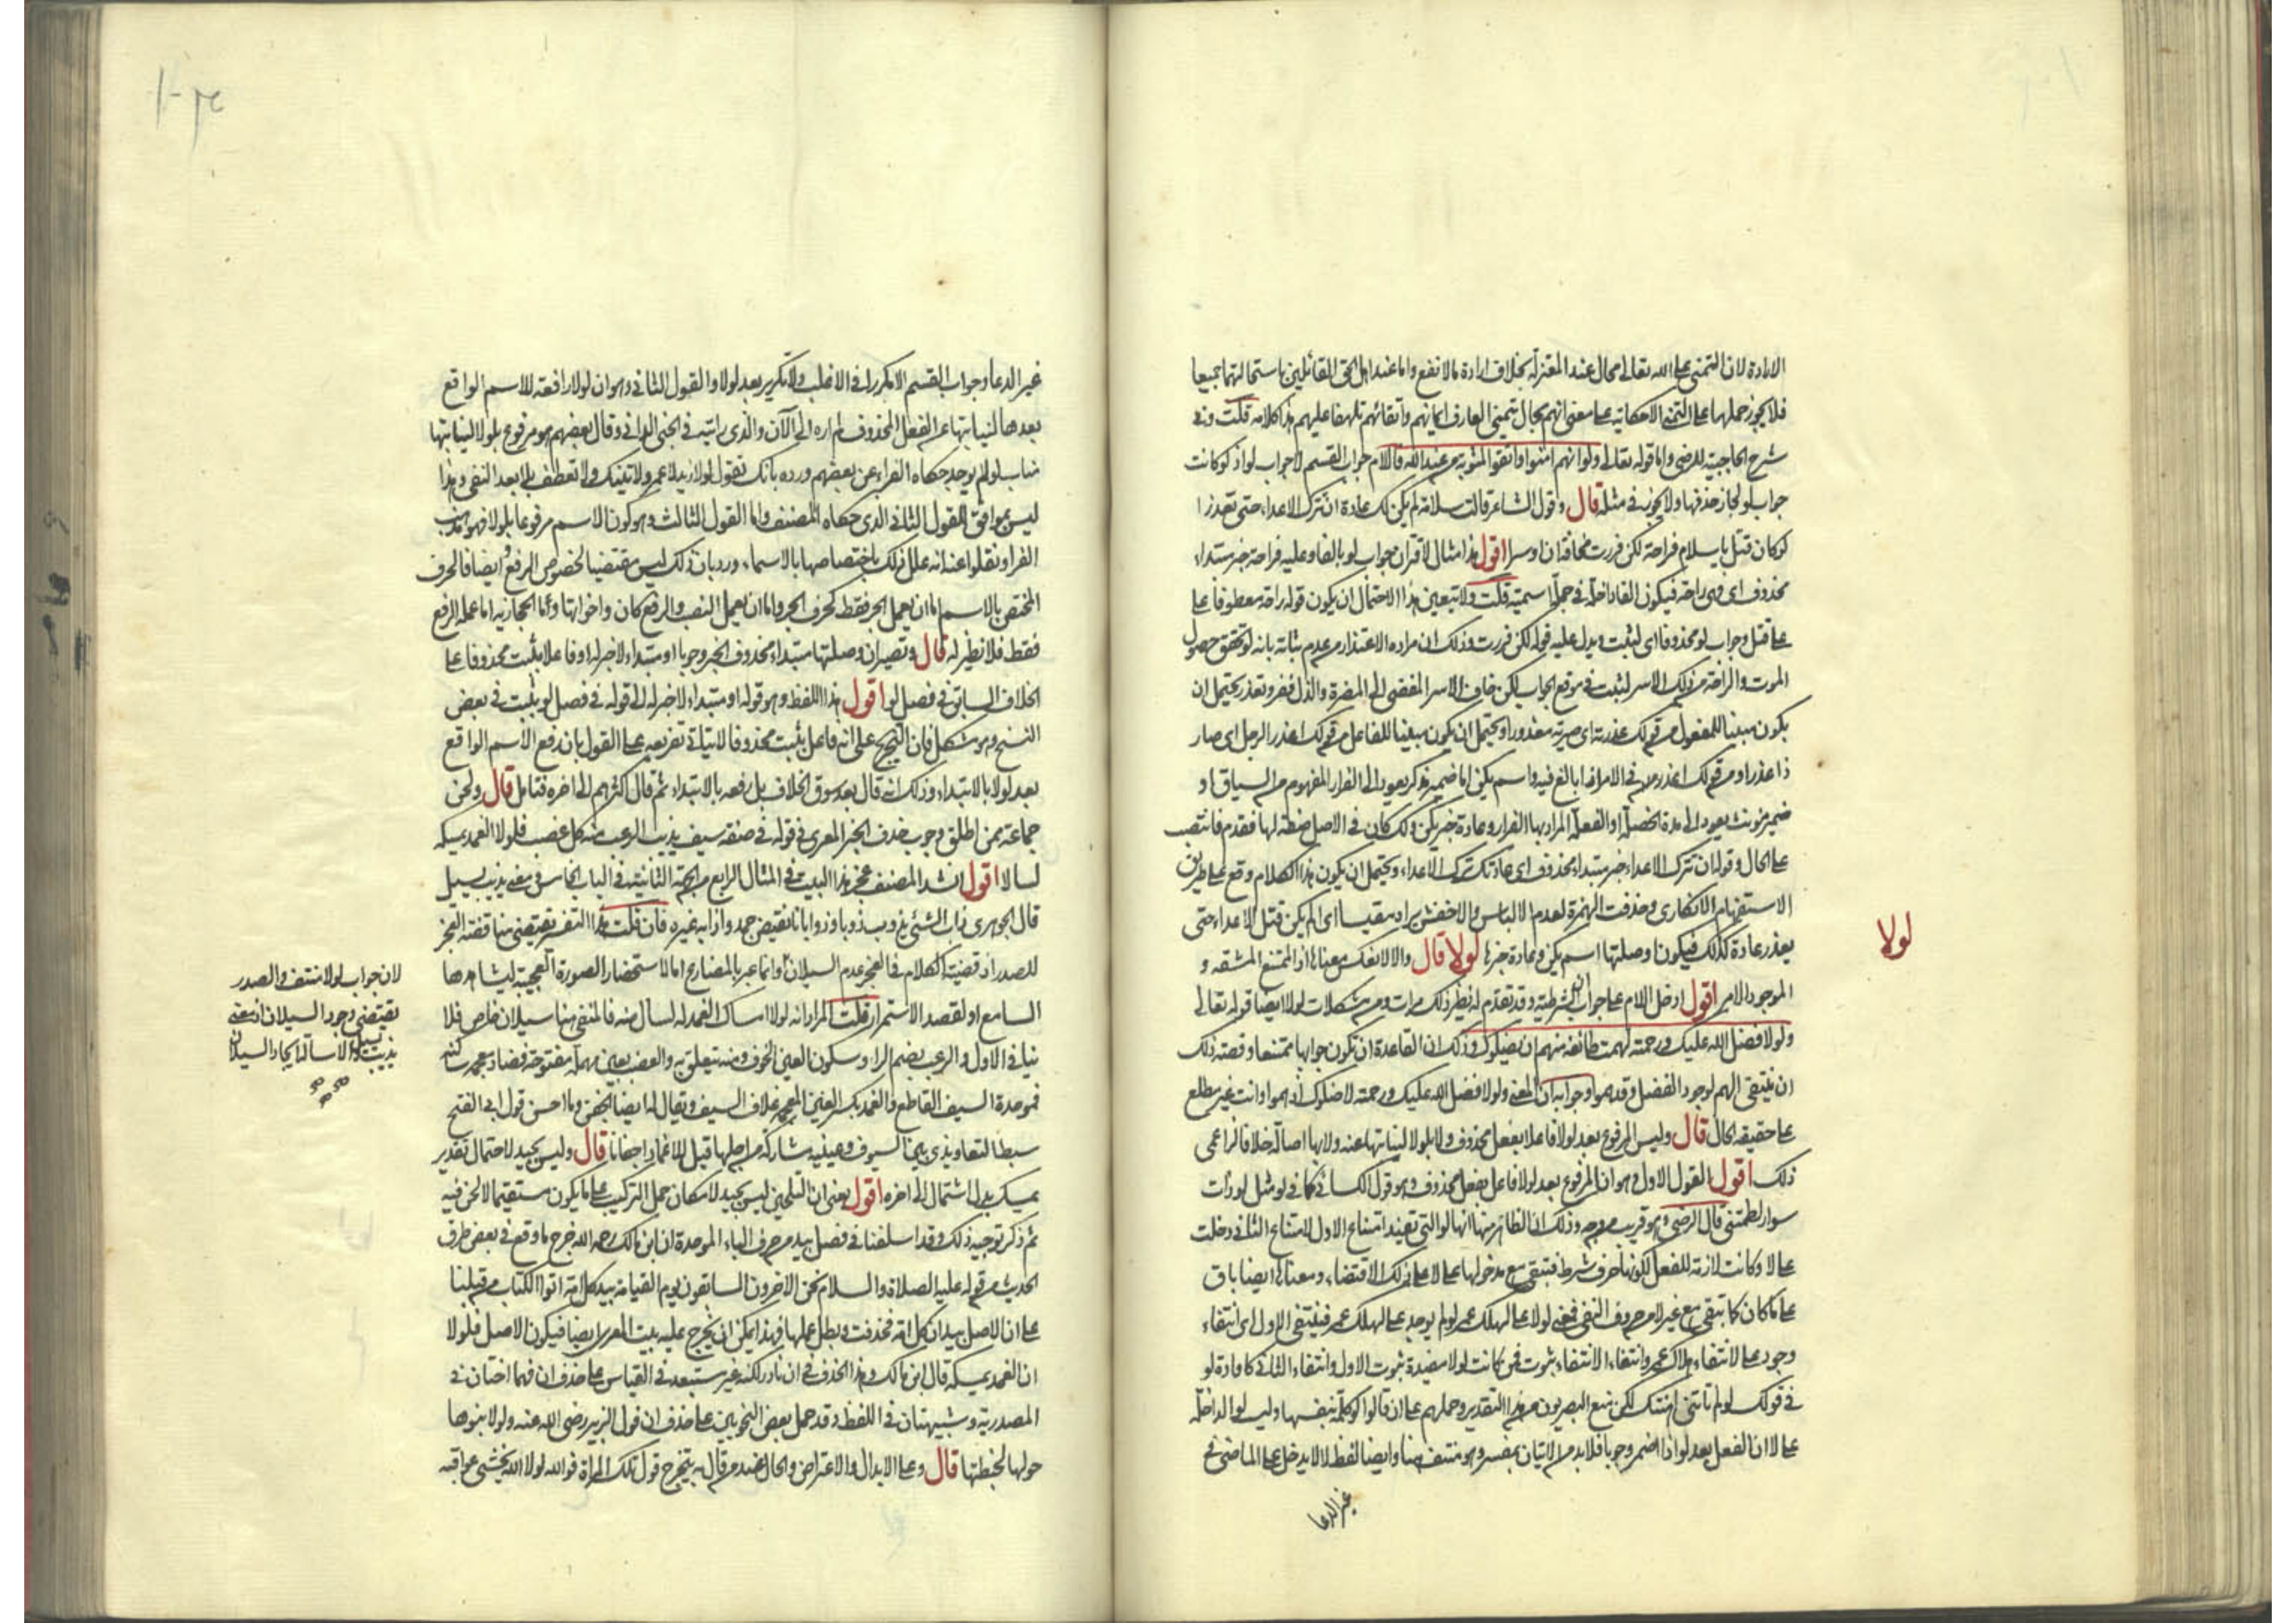 الارادة لان التمنى على الله تعالى محال عند المعتزلة بخلاف ارادة ما لا تقع واما عند اهل الحق القائلين باستحالتهما جميعا
فلا يجوز حملها على التمنى الا حكاية على معنى انهم بحال يتمنى العارف ايمانهم واتقائهم تلهفا عليهم هذا كلامه قلت وفى
شرح الحاجبية للرضى واما قوله تعالى ولو انهم امنوا واتقوا لمثوبة من عند الله فاللام جواب القسم لا جواب لو اذ لو كانت
جواب لو لجاز حذفها ولا يجوز فى مثله قال وقول الشاعر قالت سلامة لم يكن لك عادة ان تترك الاعداء حتى تعذرا
لو كان قتل يا سلام فراحة لكن فررت مخافة ان اوسرا اقول هذا مثال لاقتران جواب لو بالفاء وعليه فراحة خبر مبتداء
محذوف اى فهى راحة فيكون الفاء داخلة فى جملة اسمية قلت ولا يتعين هذا الاحتمال ان يكون قوله راحة معطوفا على
على قتل وجواب لو محذوفا اى لثبت ويدل عليه قوله لكن فررت وذلك ان مراده الاعتذار من عدم ثباته بانه لو تحقق حصول
الموت والراحة من ذلك الاسر لثبت فى موقع الحراب لكن خاف الاسر المفضى الى المضرة والذل ففر وتعذر يحتمل ان
يكون مبنيا للمفعول من قولك عذرته اى صيرته معذورا ويحتمل ان يكون مبنيا للفاعل من قولك اعذر الرجل اى صار
ذا عذر او من قولك اعذر فى الامر اذا بالغ فيه واسم يكن اما ضمير مذكر يعود الى الفرار المفهوم من السياق او
ضمير مؤنث يعود الى هذه الخصلة او الفعلة المراد بها الفرار وعادة خبر يكن ولك كان فى الاصل صفة لها فقدم فانتصب
على الحال وقوله ان تترك الاعداء خبر مبتداء محذوف اى عادتك ترك الاعداء ويحتمل ان يكون هذا الكلام وقع على طريق
الاستفهام الانكارى وحذفت الهمزة لعدم الالباس والاخفش يراه مقيسا اى الم يكن قتل الاعداء حتى
يعذر عادة لك فيكون ان وصلتها اسم يكن وعادة خبرها لولا قال والا لانعكس معناها اذ الممتنع المشقة و
الموجود الامر اقول ادخل اللام على جواب ان الشرطية وقد تقدم له نظير ذلك مرات ومن مشكلات لولا ايضا قوله تعالى
ولولا فضل الله عليك ورحمته لهمت طائفة منهم ان يضلوك وذلك ان القاعدة ان يكون جوابها ممتنعا وقصة ذلك
ان ينتفى الهم لوجود الفضل وقد هموا وجوابه ان المعنى ولولا فضل الله عليك ورحمته لاضلوك اذ هموا وانت غير مطلع
على حقيقة الحال قال وليس المرفوع بعد لولا فاعلا بفعل محذوف ولا بلولا لنيابتها عنه ولا بها اصالة خلافا لزاعمى
ذلك اقول القول الاول وهو ان المرفوع بعد لولا فاعل بفعل محذوف وهو قول الكسائى كما فى لو مثل لو ذات
سوار لطمتنى قال الرضى وهو قريب من وجه وذلك ان الظاهر منها انها لو التى تفيد امتناع الاول لامتناع الثانى دخلت
على لا وكانت لازمة للفعل لكونها حرف شرط فتبقى مع دخولها على لا على ذلك الاقتضاء ومعناها ايضا باق
على ما كان كما تبقى مع غير لا من حروف النفى فمعنى لولا على لهلك عمر لو لم يوجد على لهلك عمر فينتفى الاول اى انتفاء
وجود على لانتفاء هلاك عمر وانتفاء الانتفاء ثبوت فمن ثم كانت لولا مفيدة ثبوت الاول وانتفاء الثانى كافادة لو
فى قولك لو لم تاتنى اهنتك لكن منع البصريون من هذا التقدير وحملهم على ان قالوا لولا كلمة بنفسها وليست لو الداخلة
على لا ان الفعل بعد لو اذا اضمر وجوبا فلا بد من الاتيان بمفسر وهو منتف هنا وايضا لفظ لا لا يدخل على الماضى فى
غير الدعا
لولا
غير الدعا وجواب القسم الا مكررا فى الاغلب ولا تكرير بعد لولا والقول الثانى وهو ان لولا رافعة للاسم الواقع
بعدها لنيابتها عن الفعل المحذوف لم اره الى الآن والذى رايته فى الجنى الدانى وقال بعضهم هو مرفوع بلولا لنيابتها
مناب لو لم يوجد حكاه الفراء عن بعضهم ورده بانك تقول لولا زيد لا عمرو لاتيتك ولا تعطف بلا بعد النفى وهذا
ليس بموافق للقول الثانى الذى حكاه المصنف واما القول الثالث وهو كون الاسم مرفوعا بلولا فهو مذهب
الفرا ونقلوا عنه انه علل ذلك باختصاصها بالاسماء ورد بان ذلك ليس مقتضيا لخصوص الرفع وايضا فالحرف
المختص بالاسم اما ان يعمل الجر فقط كحرف الجر واما ان يعمل النصب والرفع كان واخواتها وما الحجازية اما عمله الرفع
فقط فلا نظير له قال وتصير ان وصلتها مبتداء محذوف الخبر وجوبا او مبتداء لا خبر له او فاعلا بثبت محذوفا على
الخلاف السابق فى فصل لو اقول هذا اللفظ وهو قوله او مبتداء لا خبر له الى قوله فى فصل لو يثبت فى بعض
النسخ وهو مشكل فان التخريج على انه فاعل بثبت محذوفا لا يتاتى تفريعه على القول بان رفع الاسم الواقع
بعد لولا بالابتداء وذلك انه قال بعد سوق الخلاف بل رفعه بالابتداء ثم قال اكثرهم الى اخره فتامل قال ولحن
جماعة ممن اطلق وجوب حذف الخبر المعرى فى قوله فى صفة سيف يذيب الرعب منه كل عضب فلولا الغمد يمسكه
لسالا اقول انشد المصنف عجز هذا البيت فى المثال الرابع من الجهة الثانية فى الباب الخامس فى معنى يذيب يسيل
قال الجوهرى ذاب الشئ يذوب ذوبا وذوبانا نقيض جمد واذابه غيره فان قلت هذا التفسير يقتضى مناقضة العجز
للصدر اذ قضية الكلام فى العجز عدم السيلان وانما عبر بالمضارع اما لاستحضار الصورة العجيبة ليشاهدها
السامع او لقصد الاستمرار قلت المراد انه لولا امساك الغمد له لسال منه فالمنفى هنا سيلان خاص فلا
ينافى الاول والرعب بضم الراء وسكون العين الخوف ومنه يتعلق به والعضب بعين مهملة مفتوحة فضاد معجمة ساكنة
فموحدة السيف القاطع والغمد بكسر الغين المعجمة غلاف السيف ويقال له ايضا الجفن وما احسن قول ابى الفتح
سبط التعاويذى بين السيوف وعينيه مشاركة من اجلها قيل للاغماد اجفانا قال وليس بجيد لاحتمال تقدير
يمسك بدل اشتمال الى اخره اقول يعنى ان التلحين ليس بجيد لامكان حمل التركيب على ما يكون مستقيما لا لحن فيه
ثم ذكر توجيه ذلك وقد اسلفنا فى فصل بيد من حرف الباء الموحدة ان ابن مالك رحمه الله خرج ما وقع فى بعض طرق
الحديث من قوله عليه الصلاة والسلام نحن الاخرون السابقون يوم القيامة بيد كل امة اتوا الكتاب من قبلنا
على ان الاصل بيد ان كل امة فحذفت وبطل عملها فهذا يمكن ان يخرج عليه بيت المعرى ايضا فيكون الاصل فلولا
ان الغمد يمسكه قال ابن مالك وهذا الحذف فى ان نادر لكنه غير مستبعد فى القياس على حذف ان فهما اختان فى
المصدرية وشبيهتان فى اللفظ وقد حمل بعض النحويين على حذف ان قول الزبير رضى الله عنه ولولا بنوها
حولها لخبطتها قال وعلى الابدال والاعتراض والحال عند من قال به يتخرج قول تلك المراة فوالله لولا الله يخشى عواقبه
لان جواب لولا منتف والصدر
يقتضى وجود السيلان اذ معنى
يذيب يسيل والاسالة ايجاد السيلان